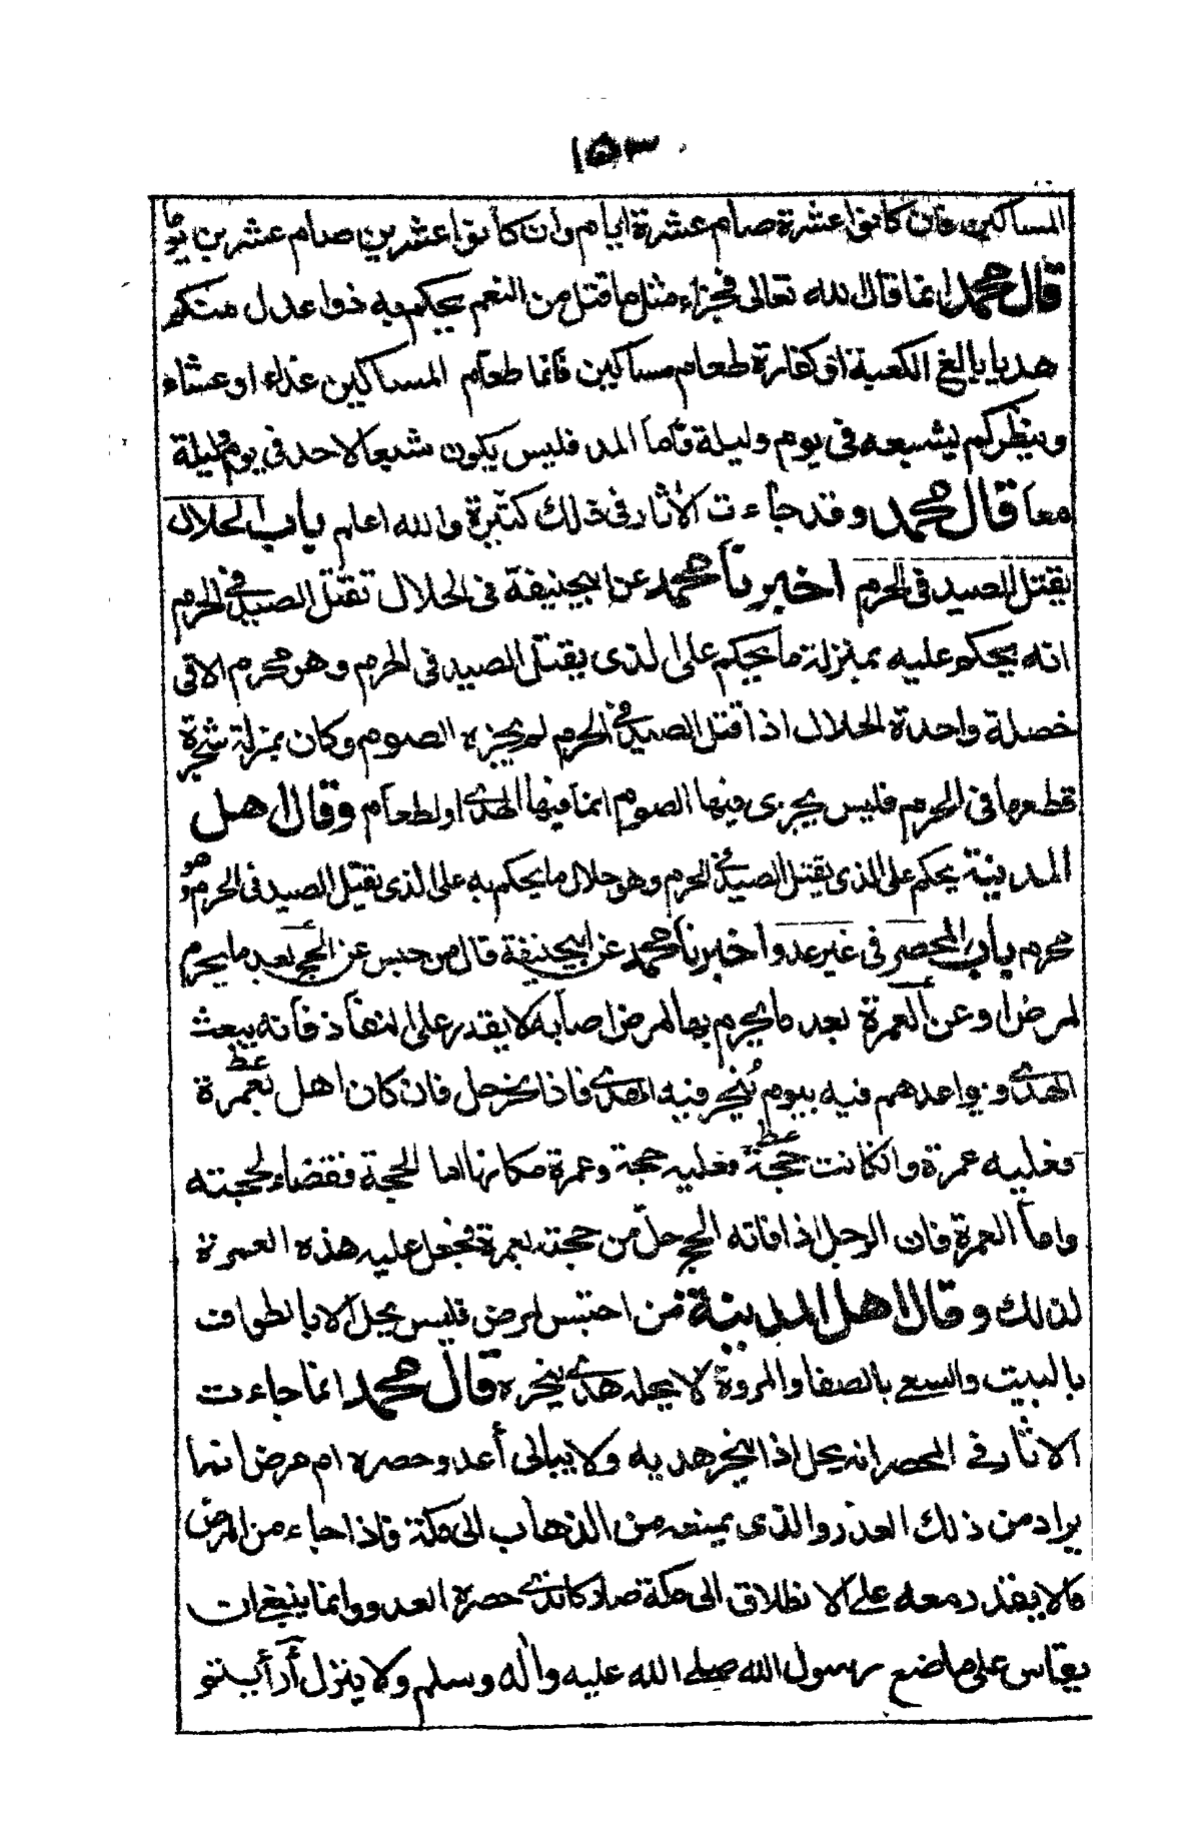 ١٥٣
المساكين فان كانوا عشرة صام عشرة ايام وان كانوا عشرين صام عشرين يوما
قال محمد انما قال الله تعالى فجزاء مثل ما قتل من النعم يحكم به ذوا عدل منكم
هديا بالغ الكعبة او كفارة طعام مساكين فانما طعام المساكين غذاء او عشاء
وينظر كم يشبعه فى يوم وليلة فأما المد فليس يكون شبعا لاحد فى يوم وليلة
معا قال محمد وقد جاءت الأثار فى ذلك كثيرة والله اعلم باب الحلال
يقتل الصيد فى الحرم اخبرنا محمد عن ابيحنيفة فى الحلال تقتل الصيد فى الحرم
انه يحكم عليه بمنزلة ما يحكم على الذى يقتل الصيد فى الحرم وهو محرم الا فى
خصلة واحدة الحلال اذا قتل الصيد فى الحرم لم يجزه الصوم وكان بمنزلة شجرة
قطعها فى الحرم فليس يجزى فيها الصوم انما فيها الهدى او لطعام وقال اهل
المدينة يحكم على الذى يقتل الصيد فى الحرم وهو حلال ما يحكم به على الذى يقتل الصيد فى الحرم وهو
محرم باب المحصر فى غير عدو اخبرنا محمد عن ابيحنيفة قال من حبس عن الحج بعد ما يحرم
لمرض او عن العمرة بعد ما يحرم بها لمرض اصابه لا يقدر على النفاذ فأنه يبعث
الهدى ويواعدهم فيه بيوم يُنحر فيه الهدى فاذا نحر حل فان كان اهل بعمرة
فعليه عمرة وان كانت حجة فعليه حجة وعمرة مكانها اما الحجة فقضاء لحجته
واما العمرة فان الرجل اذا فاته الحج حل من حجته بعمرة فجعل عليه هذه العمرة
لذلك وقال اهل المدينة من احتبس لمرض فليس يحل الا بالطواف
بالبيت والسعى بالصفا والمروة لا يحله هدى ينحره قال محمد انما جاءت
الاثار فى المحصر انه يحل اذا نحر هديه ولا يبالى أعدو حصره ام مرض انما
يراد من ذلك العذر والذى يمنعه من الذهاب الى مكة فاذا جاء من المرض
مالا يقدر معه على الانطلاق الى مكة صار كالذى حصره العدو وانما ينبغى ان
يقاس على ما صنع رسول الله صلى الله عليه وأله وسلم ولا ينزل